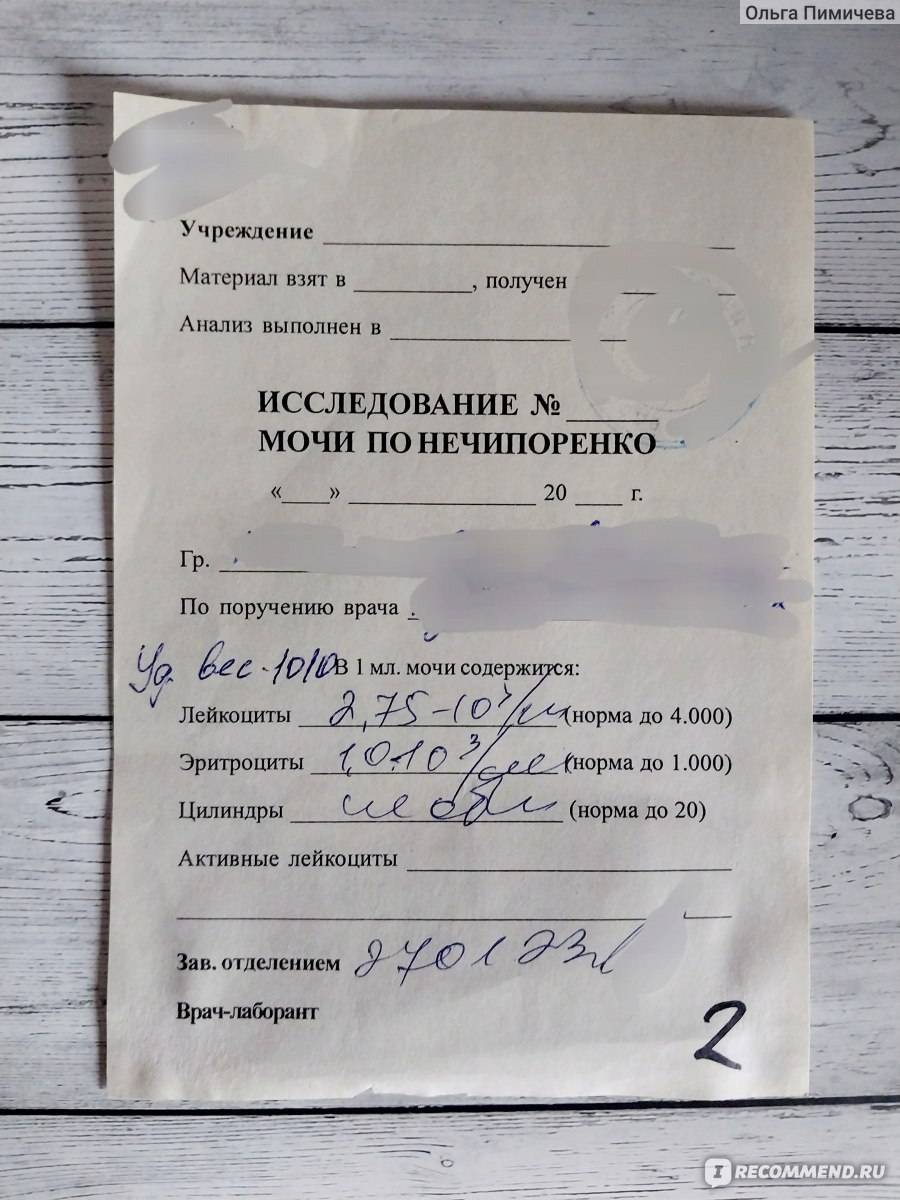 Ольга Пимичева
Учреждение
Материал взят в , получен
Анализ выполнен в
ИССЛЕДОВАНИЕ №
МОЧИ ПО НЕЧИПОРЕНКО
« » 20 г.
Гр.
По поручению врача
Уд. вес-1010 В 1 мл. мочи содержится:
Лейкоциты 2,75-10³/мл (норма до 4.000)
Эритроциты 1,0.10³/мл (норма до 1.000)
Цилиндры не обн (норма до 20)
Активные лейкоциты
Зав. отделением 270123
Врач-лаборант
2
IRECOMMEND.RU